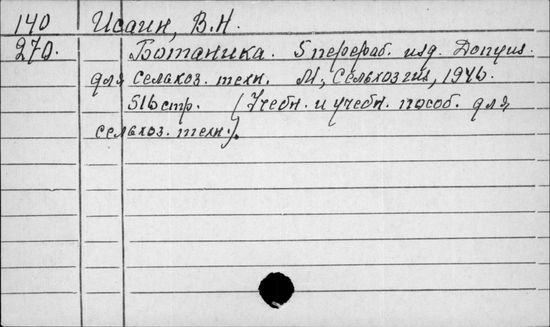 140 Исаин, В.Н.
270. Ботаника. 5 перераб. изд. Допущ.
для сельхоз. техн. М., Сельхозгиз, 1946.
516 стр. (Учебн. и учебн. пособ. для
сельхоз. техн.).